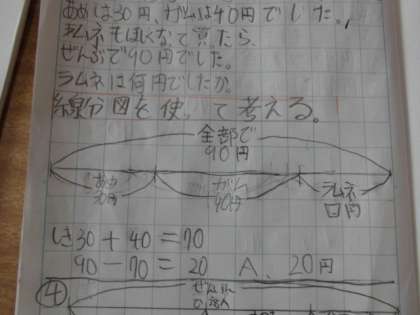 あめは30円、ガムは40円でした。
ラムネもほしくなって買ったら、
ぜんぶで90円でした。
ラムネは何円でしたか。
線分図を使って考える。
全部で
90円
あめ ガム ラムネ
30円 40円 口円
しき30+40=70
90-70=20 A、20円
④